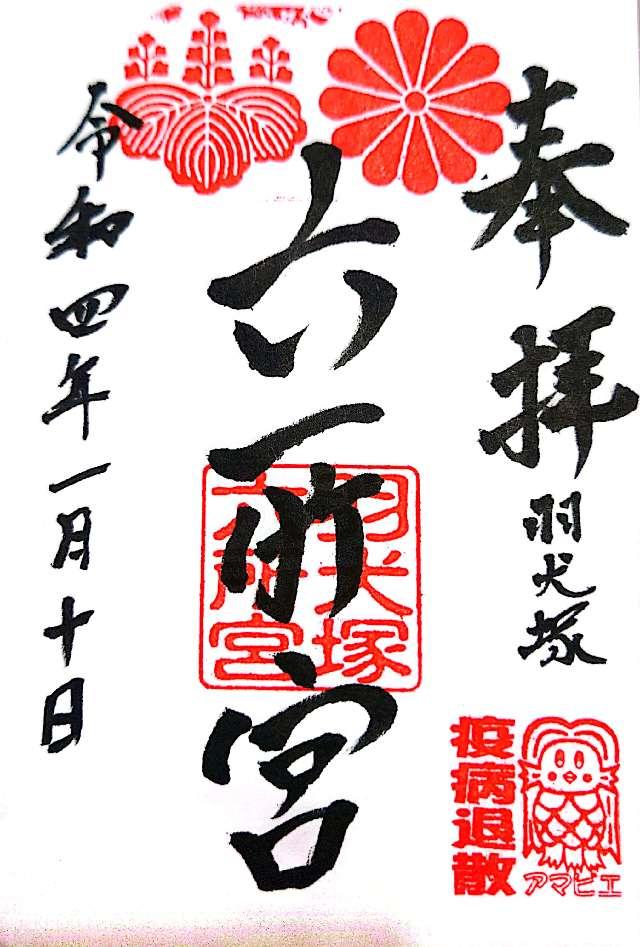 奉拝
羽犬塚
六所宮
羽犬塚
六所宮
令和四年一月十日
疫病退散
アマビエ